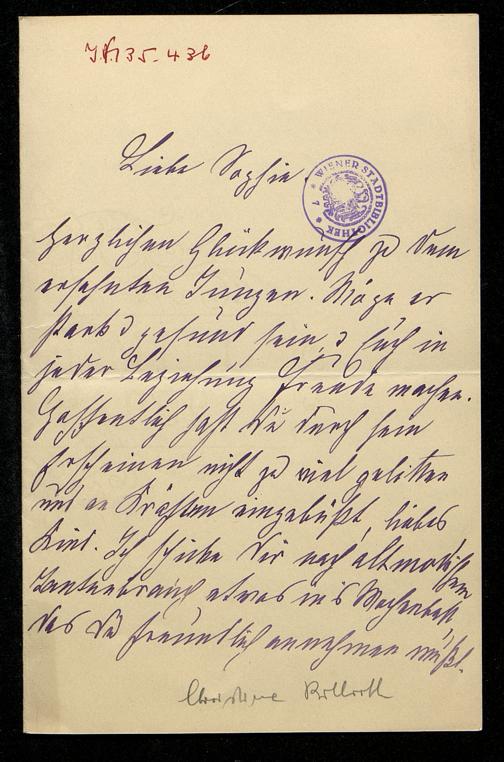 J.N. 135.436
Liebe Sophie
WIENER STADTBIBLIOTHEK * 1 *
herzlichen Glückwunsch zu dem
ersehnten Jungen. Möge er
stark & gesund sein, & Euch in
jeder Beziehung Freude machen.
Hoffentlich hast Du durch sein
Erscheinen nicht zu viel gelitten
und an Kräften eingebüßt, liebes
Kind. Ich schicke Dir nach altmodischem
Tantenbrauch etwas ins Wochenbett
das Du freundlich annehmen mußt.
Christine Billroth